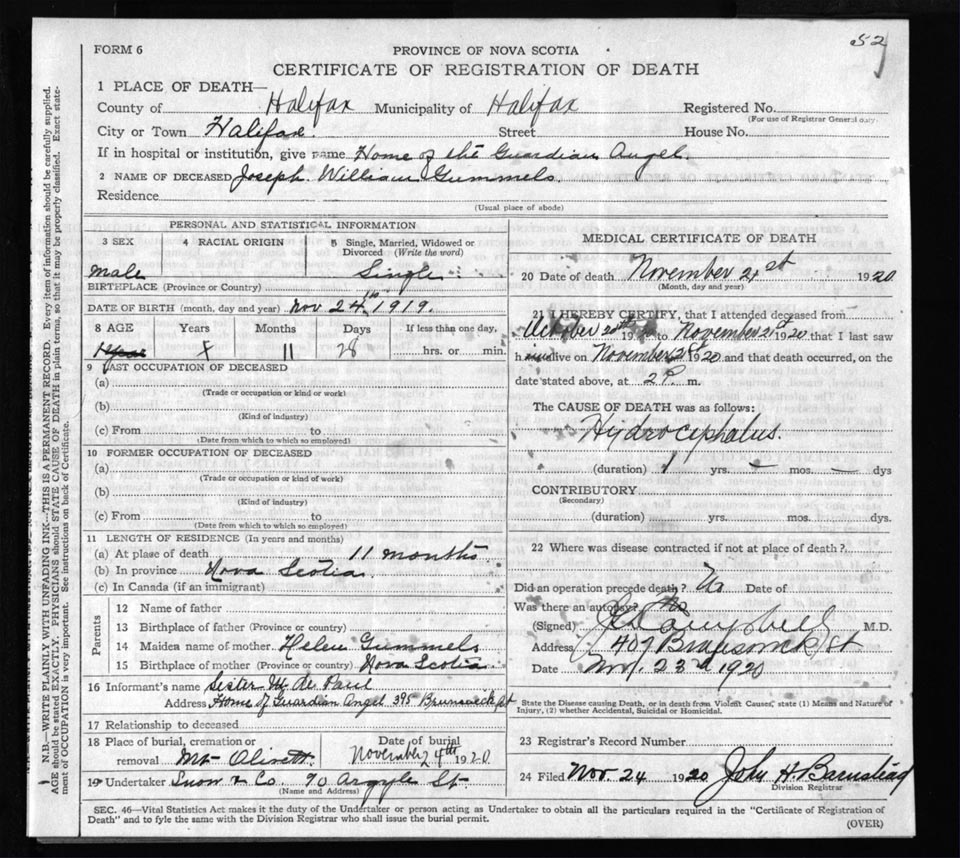 52
FORM 6
PROVINCE OF NOVA SCOTIA
CERTIFICATE OF REGISTRATION OF DEATH
1 PLACE OF DEATH—
County of Halifax Municipality of Halifax Registered No.
(For use of Registrar General only.
City or Town Halifax. Street House No.
If in hospital or institution, give name Home of the Guardian Angel.
2 NAME OF DECEASED Joseph William Gummels.
Residence
(Usual place of abode)
PERSONAL AND STATISTICAL INFORMATION
3 SEX 4 RACIAL ORIGIN 5 Single, Married, Widowed or Divorced (Write the word)
male Single
BIRTHPLACE (Province or Country)
DATE OF BIRTH (month, day and year) Nov 24th 1919.
8 AGE Years Months Days If less than one day,
11 28 hrs. or min.
9 LAST OCCUPATION OF DECEASED
(a)
(Trade or occupation or kind or work)
(b)
(Kind of industry)
(c) From to
(Date from which to which so employed)
10 FORMER OCCUPATION OF DECEASED
(a)
(Trade or occupation or kind of work)
(b)
(Kind of industry)
(c) From to
(Date from which to which so employed)
11 LENGTH OF RESIDENCE (In years and months)
(a) At place of death 11 months
(b) In province Nova Scotia.
(c) In Canada (if an immigrant)
Parents
12 Name of father
13 Birthplace of father (Province or country)
14 Maiden name of mother Helen Gummels
15 Birthplace of mother (Province or country) Nova Scotia
16 Informant's name Sister M de Paul
Address Home of Guardian Angel 395 Brunswick st
17 Relationship to deceased
18 Place of burial, cremation or removal Mt Olivett. Date of burial November 24th 1920.
19 Undertaker Snow & Co. 90 Argyle St.
(Name and Address)
MEDICAL CERTIFICATE OF DEATH
20 Date of death November 21st 1920
(Month, day and year)
21 I HEREBY CERTIFY, that I attended deceased from
October 20th 19 to November 21st 1920 that I last saw
him alive on November 21st 1920 and that death occurred, on the
date stated above, at 2 P. m.
The CAUSE OF DEATH was as follows:
Hydrocephalus.
(duration) 1 yrs. – mos. – dys
CONTRIBUTORY
(Secondary)
(duration) yrs. mos. dys.
22 Where was disease contracted if not at place of death?
Did an operation precede death? No Date of
Was there an autopsy? No
(Signed) Campbell M.D.
Address 407 Brunswick St
Date Nov. 23rd 1920
State the Disease causing Death, or in death from Violent Causes, state (1) Means and Nature of
Injury, (2) whether Accidental, Suicidal or Homicidal.
23 Registrar's Record Number
24 Filed Nov. 24 1920 John H. Barnstead
Division Registrar
SEC. 46—Vital Statistics Act makes it the duty of the Undertaker or person acting as Undertaker to obtain all the particulars required in the "Certificate of Registration of
Death" and to fyle the same with the Division Registrar who shall issue the burial permit.
(OVER)
N.B.—WRITE PLAINLY WITH UNFADING INK—THIS IS A PERMANENT RECORD. Every item of information should be carefully supplied.
AGE should be stated EXACTLY. PHYSICIANS should STATE CAUSE OF DEATH in plain terms, so that it may be properly classified. Exact state-
ment of OCCUPATION is very important. See instructions on back of Certificate.